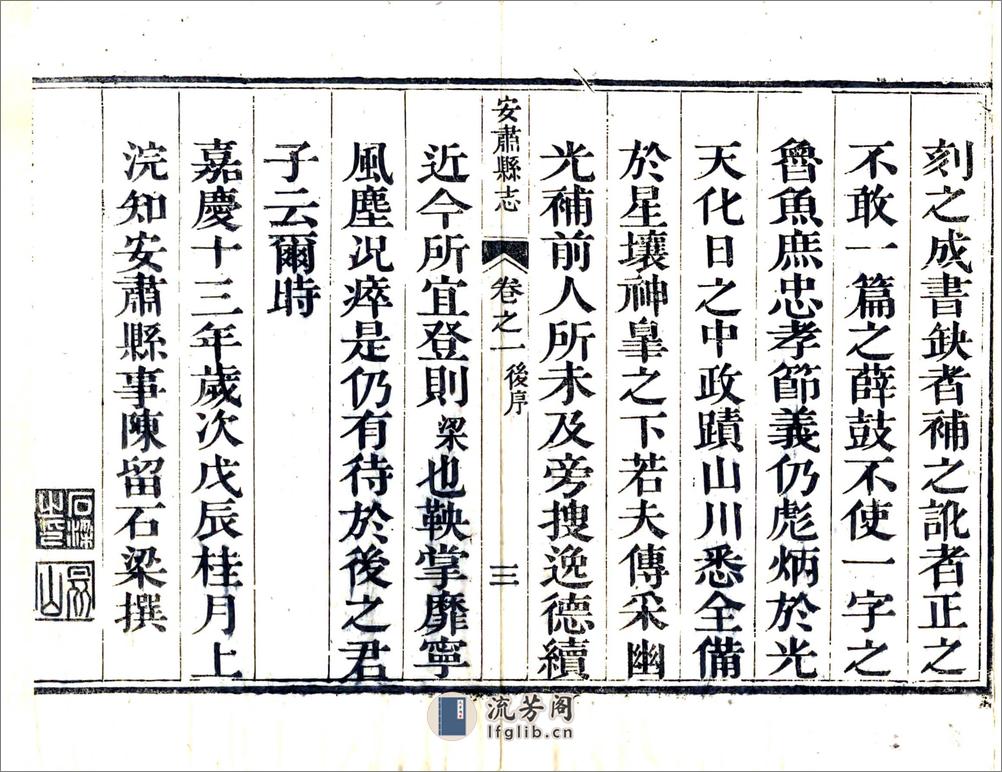 刻之成書缺者補之訛者正之
不敢一篇之薛鼓不使一字之
魯魚庶忠孝節義仍彪炳於光
天化日之中政蹟山川悉全備
於星壤神臯之下若夫傳采幽
光補前人所未及旁搜逸德續
安肅縣志 卷之一 後序 三
近今所宜登則梁也鞅掌靡寧
風塵况瘁是仍有待於後之君
子云爾時
嘉慶十三年歲次戊辰桂月上
浣知安肅縣事陳留石梁撰
石梁之印
流芳阁
lfglib.cn